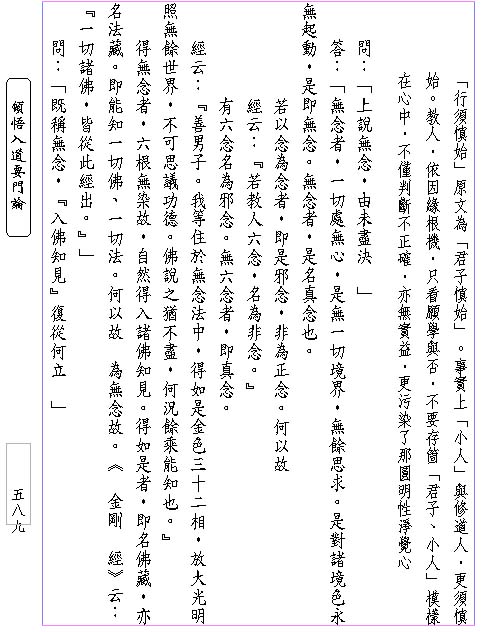 「行須慎始」原文為「君子慎始」。事實上「小人」與修道人，更須慎
始。教人，依因緣根機，只看願學與否，不要存箇「君子、小人」模樣
在心中，不僅判斷不正確，亦無實益，更污染了那圓明性淨覺心
問：「上說無念，由未盡決　」
答：「無念者，一切處無心，是無一切境界，無餘思求。是對諸境色永
無起動，是即無念。無念者，是名真念也。
若以念為念者，即是邪念，非為正念。何以故
經云：『若教人六念，名為非念。』
有六念名為邪念。無六念者，即真念。
經云：『善男子。我等住於無念法中，得如是金色三十二相，放大光明
照無餘世界，不可思議功德。佛說之猶不盡，何況餘乘能知也。』
得無念者，六根無染故，自然得入諸佛知見。得如是者，即名佛藏，亦
名法藏。即能知一切佛、一切法。何以故　為無念故。《　金剛　經》云：
『一切諸佛，皆從此經出。』」
問：「既稱無念，『入佛知見』復從何立　」
頓悟入道要門論
五八九